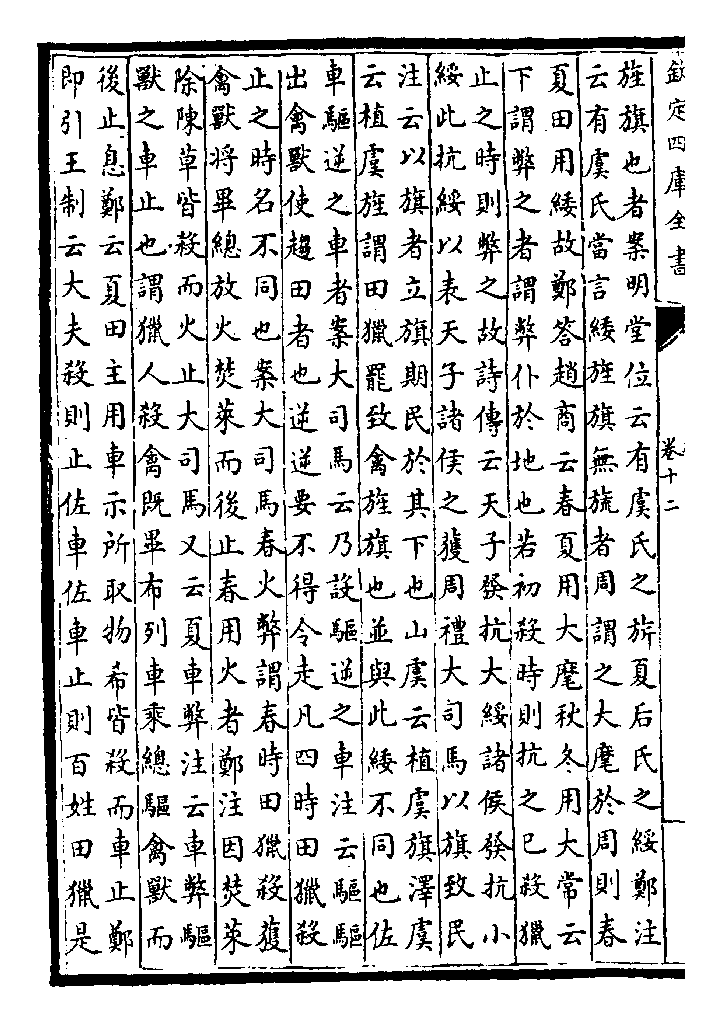 欽定四庫全書
卷十二
旌旗也者案明堂位云有虞氏之旂夏后氏之綏鄭注
云有虞氏當言緌旌旗無旒者周謂之大麾於周則春
夏田用緌故鄭答趙商云春夏用大麾秋冬用大常云
下謂弊之者謂弊仆於地也若初殺時則抗之已殺獵
止之時則弊之故詩傳云天子發抗大綏諸侯發抗小
綏此抗綏以表天子諸侯之獲周禮大司馬以旗致民
注云以旗者立旗期民於其下也山虞云植虞旗澤虞
云植虞旌謂田獵罷致禽旌旗也並與此緌不同也佐
車驅逆之車者案大司馬云乃設驅逆之車注云驅驅
出禽獸使趨田者也逆逆要不得令走凡四時田獵殺
止之時名不同也案大司馬春火弊謂春時田獵殺獲
禽獸將畢總放火焚萊而後止春用火者鄭注因焚萊
除陳草皆殺而火止大司馬又云夏車弊注云車弊驅
獸之車止也謂獵人殺禽既畢布列車乘總驅禽獸而
後止息鄭云夏田主用車示所取物希皆殺而車止鄭
即引王制云大夫殺則止佐車佐車止則百姓田獵是